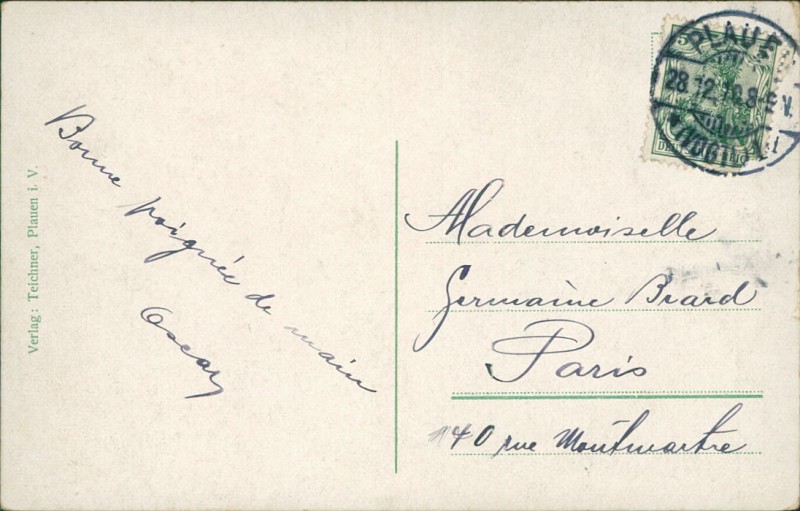 Bonne
poignée de main
Oscar
Verlag: Teichner, Plauen i. V.
5
PLAUE
28.12.10.8-9 V.
*(VOGTL.)
Mademoiselle
Germaine Brard
Paris
140 rue Montmartre